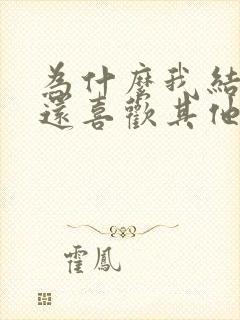 為什麼我結
還喜歡其他
霍鳳